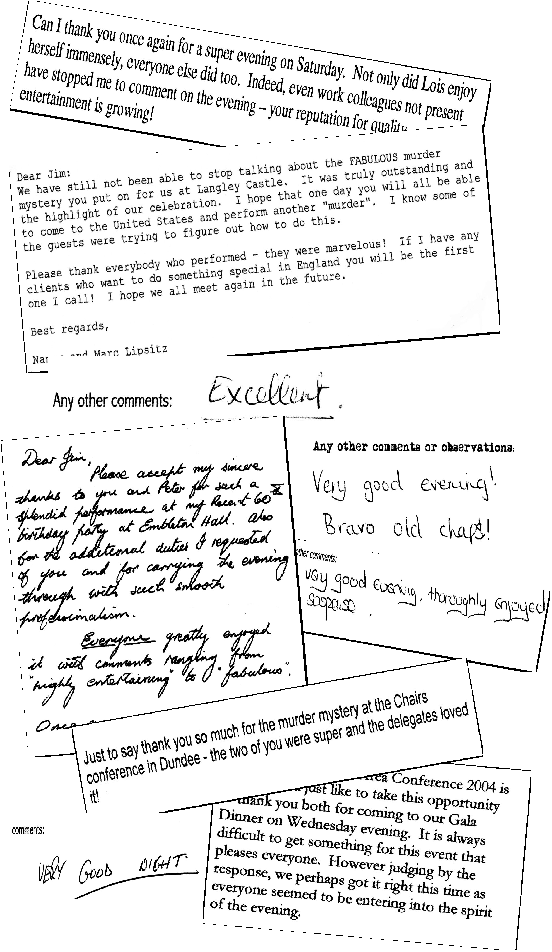 Can I thank you once again for a super evening on Saturday. Not only did Lois enjoy
herself immensely, everyone else did too. Indeed, even work colleagues not present
have stopped me to comment on the evening – your reputation for quality
entertainment is growing!
Dear Jim:
We have still not been able to stop talking about the FABULOUS murder
mystery you put on for us at Langley Castle. It was truly outstanding and
the highlight of our celebration. I hope that one day you will all be able
to come to the United States and perform another "murder". I know some of
the guests were trying to figure out how to do this.
Please thank everybody who performed - they were marvelous! If I have any
clients who want to do something special in England you will be the first
one I call! I hope we all meet again in the future.
Best regards,
and Marc Lipsitz
Any other comments: Excellent.
Dear Jim,
Please accept my sincere
thanks to you and Peter for such a
splendid performance at my Recent 60
birthday party at Embleton Hall. Also
for the additional duties I requested
of you and for carrying the evening
through with such smooth
professionalism.
Everyone greatly enjoyed
it with comments ranging from
"highly entertaining" to "fabulous".
Once
Any other comments or observations:
Very good evening!
Bravo old chaps!
comments:
very good evening, thoroughly enjoyed
Just to say thank you so much for the murder mystery at the Chairs
conference in Dundee - the two of you were super and the delegates loved
it!
Conference 2004 is
just like to take this opportunity
thank you both for coming to our Gala
Dinner on Wednesday evening. It is always
difficult to get something for this event that
pleases everyone. However judging by the
response, we perhaps got it right this time as
everyone seemed to be entering into the spirit
of the evening.
comments:
VERY GOOD NIGHT